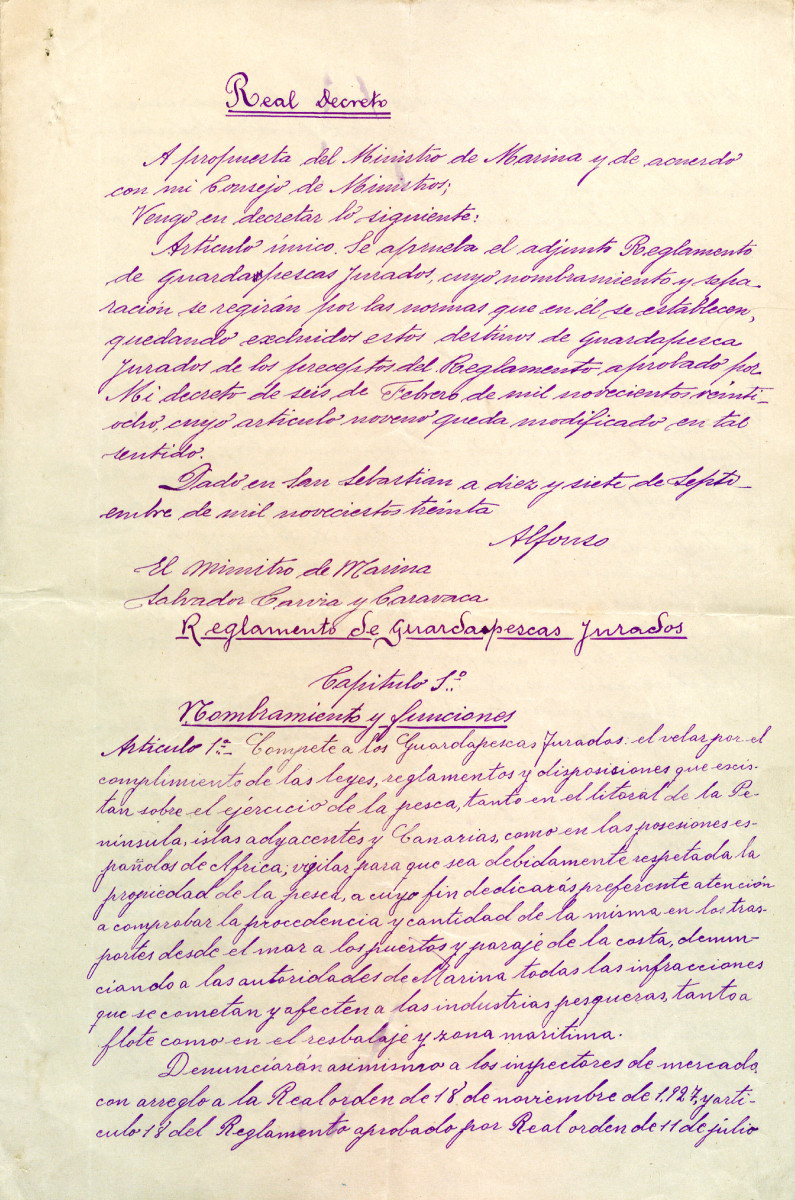 Real Decreto
A propuesta del Ministro de Marina y de acuerdo
con mi Consejo de Ministros;
Vengo en decretar lo siguiente:
Artículo único. Se aprueba el adjunto Reglamento
de Guardapescas Jurados, cuyo nombramiento y sepa-
ración se regirán por las normas que en él se establecen,
quedando excluidos estos destinos de Guardapesca
Jurados de los preceptos del Reglamento, aprobado por
Mi decreto de seis de Febrero de mil novecientos veinti-
ocho, cuyo artículo noveno queda modificado en tal
sentido.
Dado en San Sebastian a diez y siete de Septi-
embre de mil noveciestos treinta
Alfonso
El Ministro de Marina
Salvador Carvia y Caravaca
Reglamento de Guardapescas Jurados
Capitulo 1º
Nombramiento y funciones
Artículo 1º- Compete a los Guardapescas Jurados: el velar por el
complimiento de las leyes, reglamentos y disposisiones que excis-
tan sobre el ejercicio de la pesca, tanto en el litoral de la Pe-
nínsula, islas adyacentes y Canarias, como en las posesiones es-
pañolos de Africa; vigilar para que sea debidamente respetada la
propiedad de la pesca, a cuyo fin dedicarás preferente atención
a comprobar la procedencia y cantidad de la misma en los tras-
portes desde el mar a los puertos y paraje de la costa, denun-
ciando a las autoridades de Marina todas las infracciones
que se cometan y afecten a las industrias pesqueras, tanto a
flote como en el resbalaje y zona maritima.
Denunciarán asimismo a los inspectores de mercado,
con arreglo a la Real orden de 18 de noviembre de 1.927, y artí-
culo 18 del Reglamento aprobado por Real orden de 11 de júlio